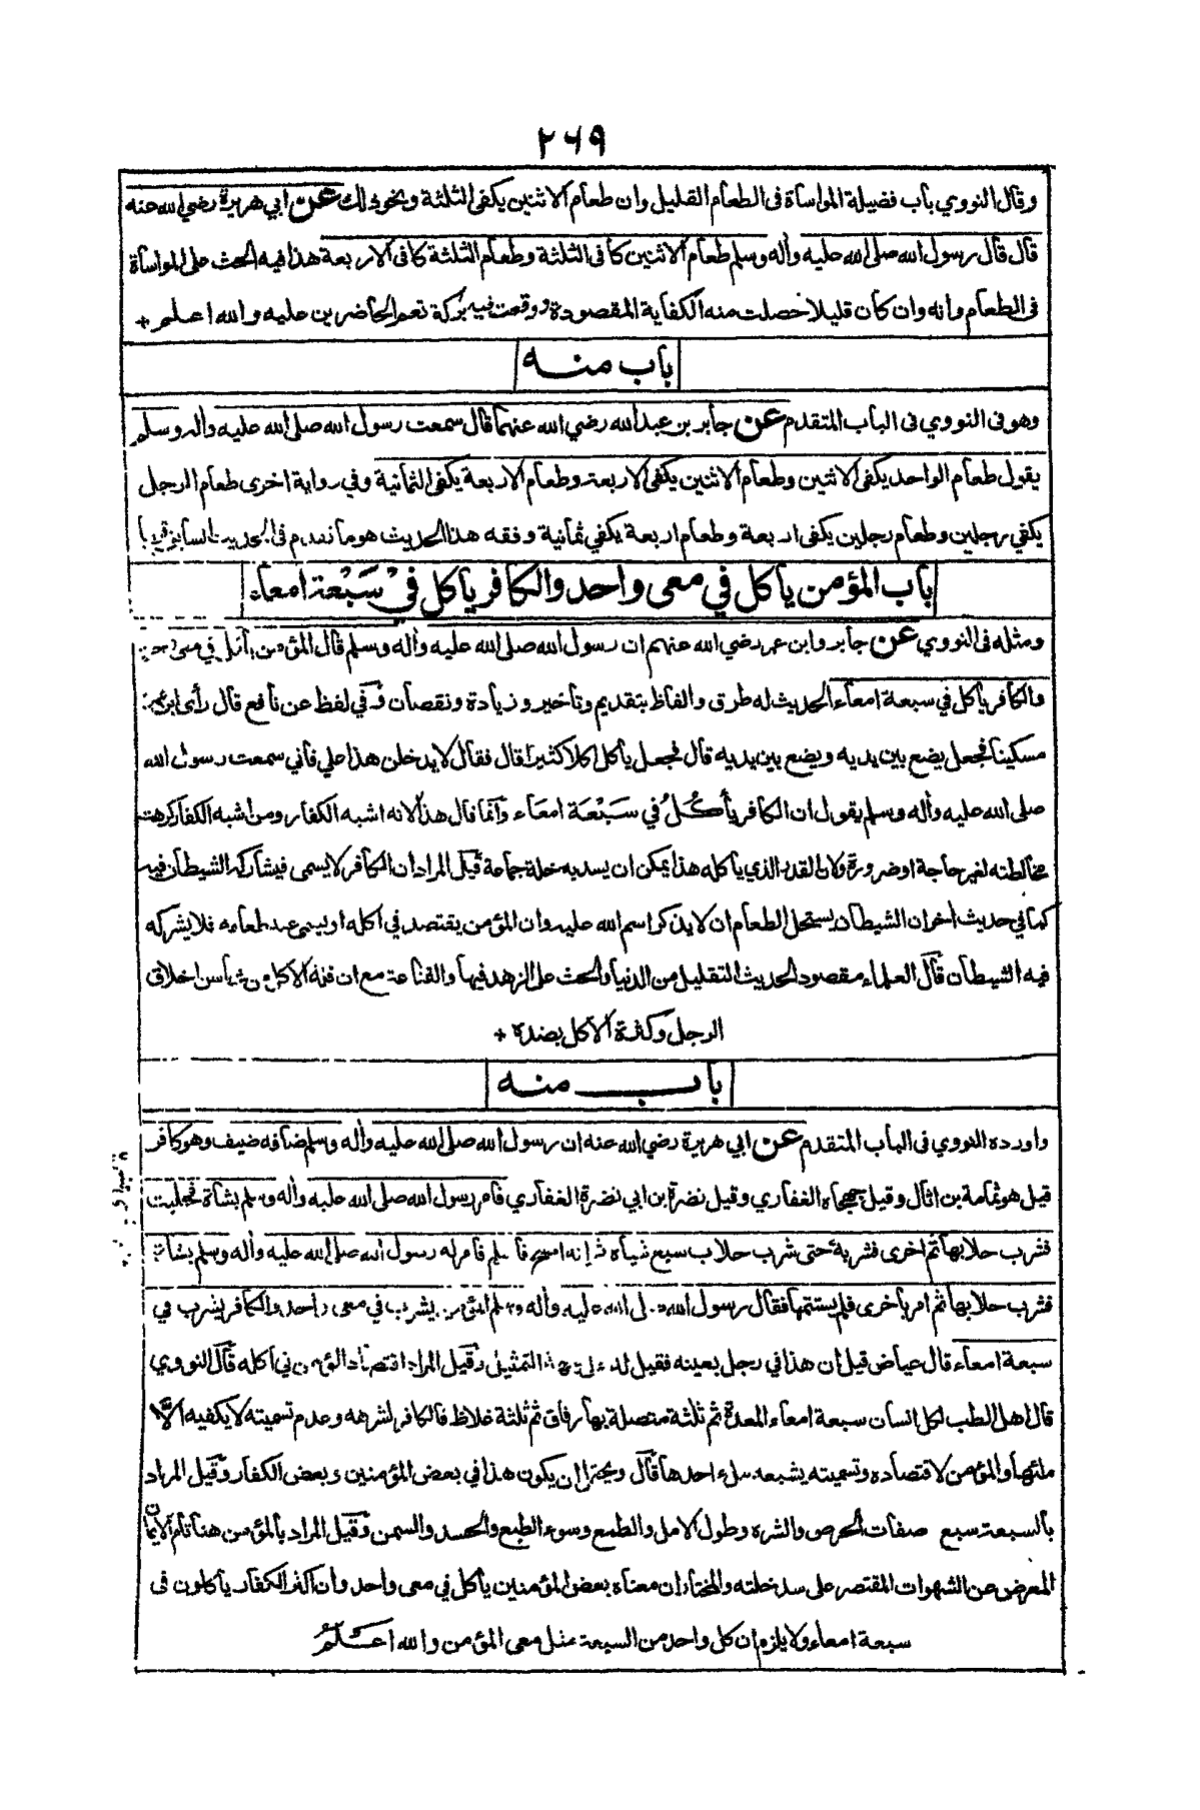 ٢٦٩
وقال النووي باب فضيلة المواساة فى الطعام القليل وان طعام الاثنين يكفى الثلثة ونحو ذلك عن ابي هريرة رضي الله عنه
قال قال رسول الله صلى الله عليه وأله وسلم طعام الاثنين كافى الثلثة وطعام الثلثة كافى الاربعة هذا فيه الحث على المواساة
فى الطعام وانه وان كان قليلا حصلت منه الكفاية المقصودة ووقعت فيه بركة تعم الحاضرين عليه والله اعلم +
باب منه
وهو فى النووي فى الباب المتقدم عن جابر بن عبد الله رضي الله عنهما قال سمعت رسول الله صلى الله عليه وأله وسلم
يقول طعام الواحد يكفى الاثنين وطعام الاثنين يكفى الاربعة وطعام الاربعة يكفى الثمانية وفي رواية اخرى طعام الرجل
يكفي رجلين وطعام رجلين يكفى اربعة وطعام اربعة يكفي ثمانية وفقه هذا الحديث هو ما تقدم فى الحديث السابق
باب المؤمن ياكل في معى واحد والكافر ياكل في سبعة امعاء
ومثله فى النووي عن جابر وابن عمر رضي الله عنهم ان رسول الله صلى الله عليه وأله وسلم قال المؤمن ياكل في معى
والكافر ياكل في سبعة امعاء الحديث له طرق والفاظ بتقديم وتأخير وزيادة ونقصان وفي لفظ عن نافع قال رأى ابن عمر
مسكينا فجعل يضع بين يديه ويضع بين يديه قال فجعل ياكل اكلا كثيرا قال فقال لا يدخلن هذا علي فاني سمعت رسول الله
صلى الله عليه وأله وسلم يقول ان الكافر يأكُلُ في سَبْعَة امعَاء وانما قال هذا لانه اشبه الكفار ومن اشبه الكفار كرهت
مخالطته لغير حاجة او ضرورة ولان القدر الذي ياكله هذا يمكن ان يسد به خلة جماعة قيل المراد ان الكافر لا يسمى فيشاركه الشيطان فيه
كما في حديث اخر ان الشيطان يستحل الطعام ان لا يذكر اسم الله عليه وان المؤمن يقتصد في اكله او يسمى عند طعامه فلا يشركه
فيه الشيطان قال العلماء مقصود الحديث التقليل من الدنيا والحث على الزهد فيها والقناعة مع ان قلة الاكل من محاسن اخلاق
الرجل وكثرة الاكل بضده +
باب منه
واورده النووي فى الباب المتقدم عن ابي هريرة رضي الله عنه ان رسول الله صلى الله عليه وأله وسلم ضافه ضيف وهو كافر
قيل هو ثمامة بن اثال وقيل جهجاه الغفاري وقيل نضرة بن ابي نضرة الغفاري فامر رسول الله صلى الله عليه وأله وسلم بشاة فحلبت
فشرب حلابها ثم اخرى فشربه حتى شرب حلاب سبع شياه ثم انه اصبح فاسلم فامر له رسول الله صلى الله عليه وأله وسلم بشاة
فشرب حلابها ثم امر باخرى فلم يستتمها فقال رسول الله صلى الله عليه وأله وسلم المؤمن يشرب في معى واحد والكافر يشرب في
سبعة امعاء قال عياض قيل ان هذا في رجل بعينه فقيل له على جهة التمثيل وقيل المراد اقتصاد المؤمن في اكله قال النووي
قال اهل الطب لكل انسان سبعة امعاء المعدة ثم ثلثة متصلة بها رقاق ثم ثلثة غلاظ فالكافر لشرهه وعدم تسميته لا يكفيه الا
ملئها والمؤمن لاقتصاده وتسميته يشبعه ملء احدها قال ويحتمل ان يكون هذا في بعض المؤمنين وبعض الكفار وقيل المراد
بالسبعة سبع صفات الحرص والشره وطول الامل والطمع وسوء الطبع والحسد والسمن وقيل المراد بالمؤمن هنا تام الايمان
المعرض عن الشهوات المقتصر على سد خلته والمختار ان معناه بعض المؤمنين يأكل في معى واحد وان اكثر الكفار ياكلون فى
سبعة امعاء ولا يلزم ان كل واحد من السبعة مثل معى المؤمن والله اعلم